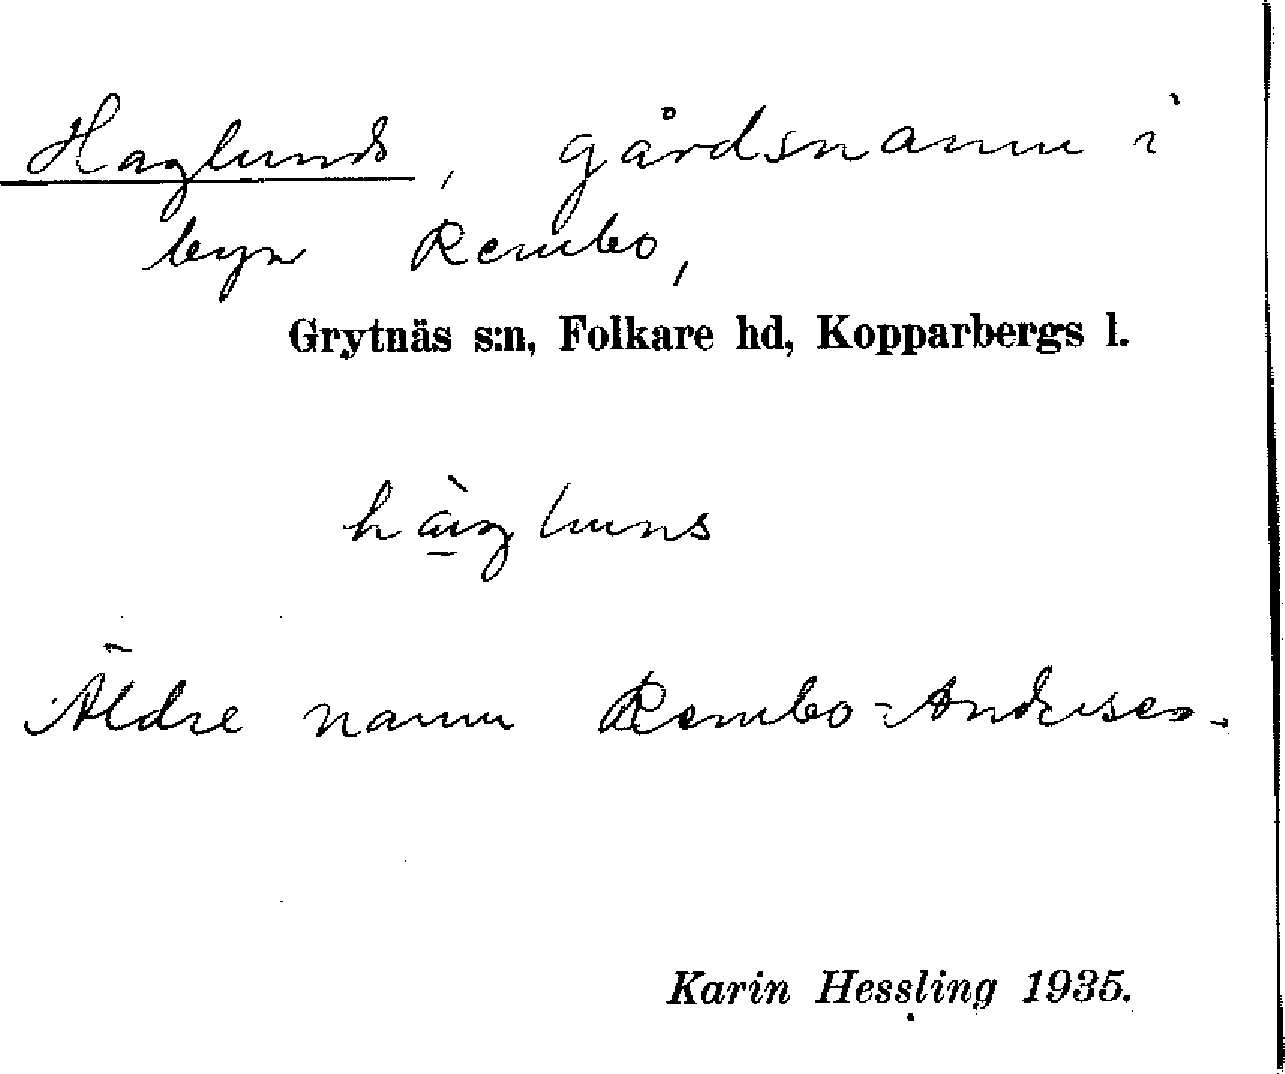 Haglunds, gårdsnamn i
byn Rembo,
Grytnäs s:n, Folkare hd, Kopparbergs l.
Äldre namn Rembo-Anderses.
Karin Hessling 1935.